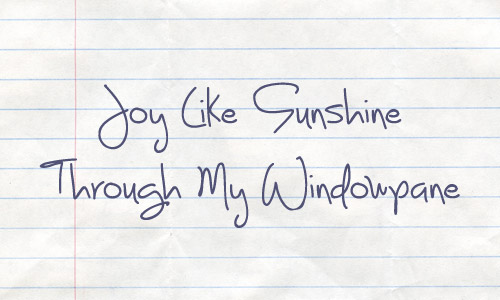 Joy Like Sunshine
Through My Windowpane